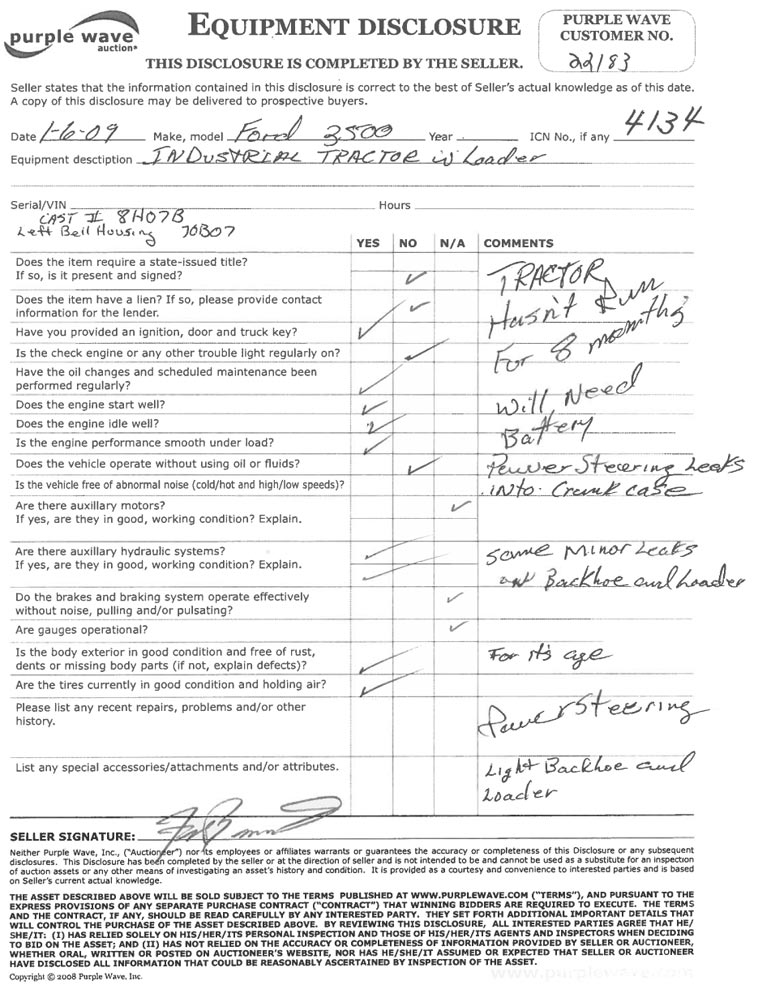 purple wave
auction®
EQUIPMENT DISCLOSURE
PURPLE WAVE
CUSTOMER NO.
22183
THIS DISCLOSURE IS COMPLETED BY THE SELLER.
Seller states that the information contained in this disclosure is correct to the best of Seller's actual knowledge as of this date.
A copy of this disclosure may be delivered to prospective buyers.
Date 1-6-09 Make, model Ford 3500 Year ICN No., if any 4134
Equipment desctiption INDUSTRIAL TRACTOR w/ Loader
Serial/VIN Hours
CAST # 8H07B
Left Bell Housing 70B07
YES NO N/A COMMENTS
Does the item require a state-issued title?
If so, is it present and signed?
TRACTOR
Does the item have a lien? If so, please provide contact
information for the lender.
Hasn't Run
Have you provided an ignition, door and truck key?
Is the check engine or any other trouble light regularly on?
For 8 months
Have the oil changes and scheduled maintenance been
performed regularly?
Does the engine start well?
Will Need
Does the engine idle well?
Battery
Is the engine performance smooth under load?
Does the vehicle operate without using oil or fluids?
Power Steering Leaks
Is the vehicle free of abnormal noise (cold/hot and high/low speeds)?
into Crank case
Are there auxillary motors?
If yes, are they in good, working condition? Explain.
Are there auxillary hydraulic systems?
If yes, are they in good, working condition? Explain.
Some Minor Leaks
Backhoe and Loader
Do the brakes and braking system operate effectively
without noise, pulling and/or pulsating?
Are gauges operational?
Is the body exterior in good condition and free of rust,
dents or missing body parts (if not, explain defects)?
For it's age
Are the tires currently in good condition and holding air?
Please list any recent repairs, problems and/or other
history.
Power Steering
List any special accessories/attachments and/or attributes.
Light Backhoe and
Loader
SELLER SIGNATURE:
Neither Purple Wave, Inc., ("Auctioneer") nor its employees or affiliates warrants or guarantees the accuracy or completeness of this Disclosure or any subsequent
disclosures. This Disclosure has been completed by the seller or at the direction of seller and is not intended to be and cannot be used as a substitute for an inspection
of auction assets or any other means of investigating an asset's history and condition. It is provided as a courtesy and convenience to interested parties and is based
on Seller's current actual knowledge.
THE ASSET DESCRIBED ABOVE WILL BE SOLD SUBJECT TO THE TERMS PUBLISHED AT WWW.PURPLEWAVE.COM ("TERMS"), AND PURSUANT TO THE
EXPRESS PROVISIONS OF ANY SEPARATE PURCHASE CONTRACT ("CONTRACT") THAT WINNING BIDDERS ARE REQUIRED TO EXECUTE. THE TERMS
AND THE CONTRACT, IF ANY, SHOULD BE READ CAREFULLY BY ANY INTERESTED PARTY. THEY SET FORTH ADDITIONAL IMPORTANT DETAILS THAT
WILL CONTROL THE PURCHASE OF THE ASSET DESCRIBED ABOVE. BY REVIEWING THIS DISCLOSURE, ALL INTERESTED PARTIES AGREE THAT HE/
SHE/IT: (I) HAS RELIED SOLELY ON HIS/HER/ITS PERSONAL INSPECTION AND THOSE OF HIS/HER/ITS AGENTS AND INSPECTORS WHEN DECIDING
TO BID ON THE ASSET; AND (II) HAS NOT RELIED ON THE ACCURACY OR COMPLETENESS OF INFORMATION PROVIDED BY SELLER OR AUCTIONEER,
WHETHER ORAL, WRITTEN OR POSTED ON AUCTIONEER'S WEBSITE, NOR HAS HE/SHE/IT ASSUMED OR EXPECTED THAT SELLER OR AUCTIONEER
HAVE DISCLOSED ALL INFORMATION THAT COULD BE REASONABLY ASCERTAINED BY INSPECTION OF THE ASSET.
www.purplewave.com
Copyright © 2008 Purple Wave, Inc.